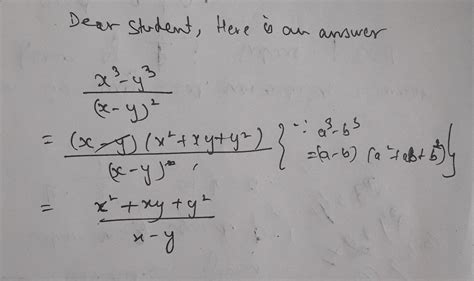 Dear Student, Here is an answer
x³-y³
(x-y)²
= (x-y) (x²+xy+y²) { ∵ a³-b³
(x-y)² =(a-b) (a²+ab+b²)}
= x²+xy+y²
x-y